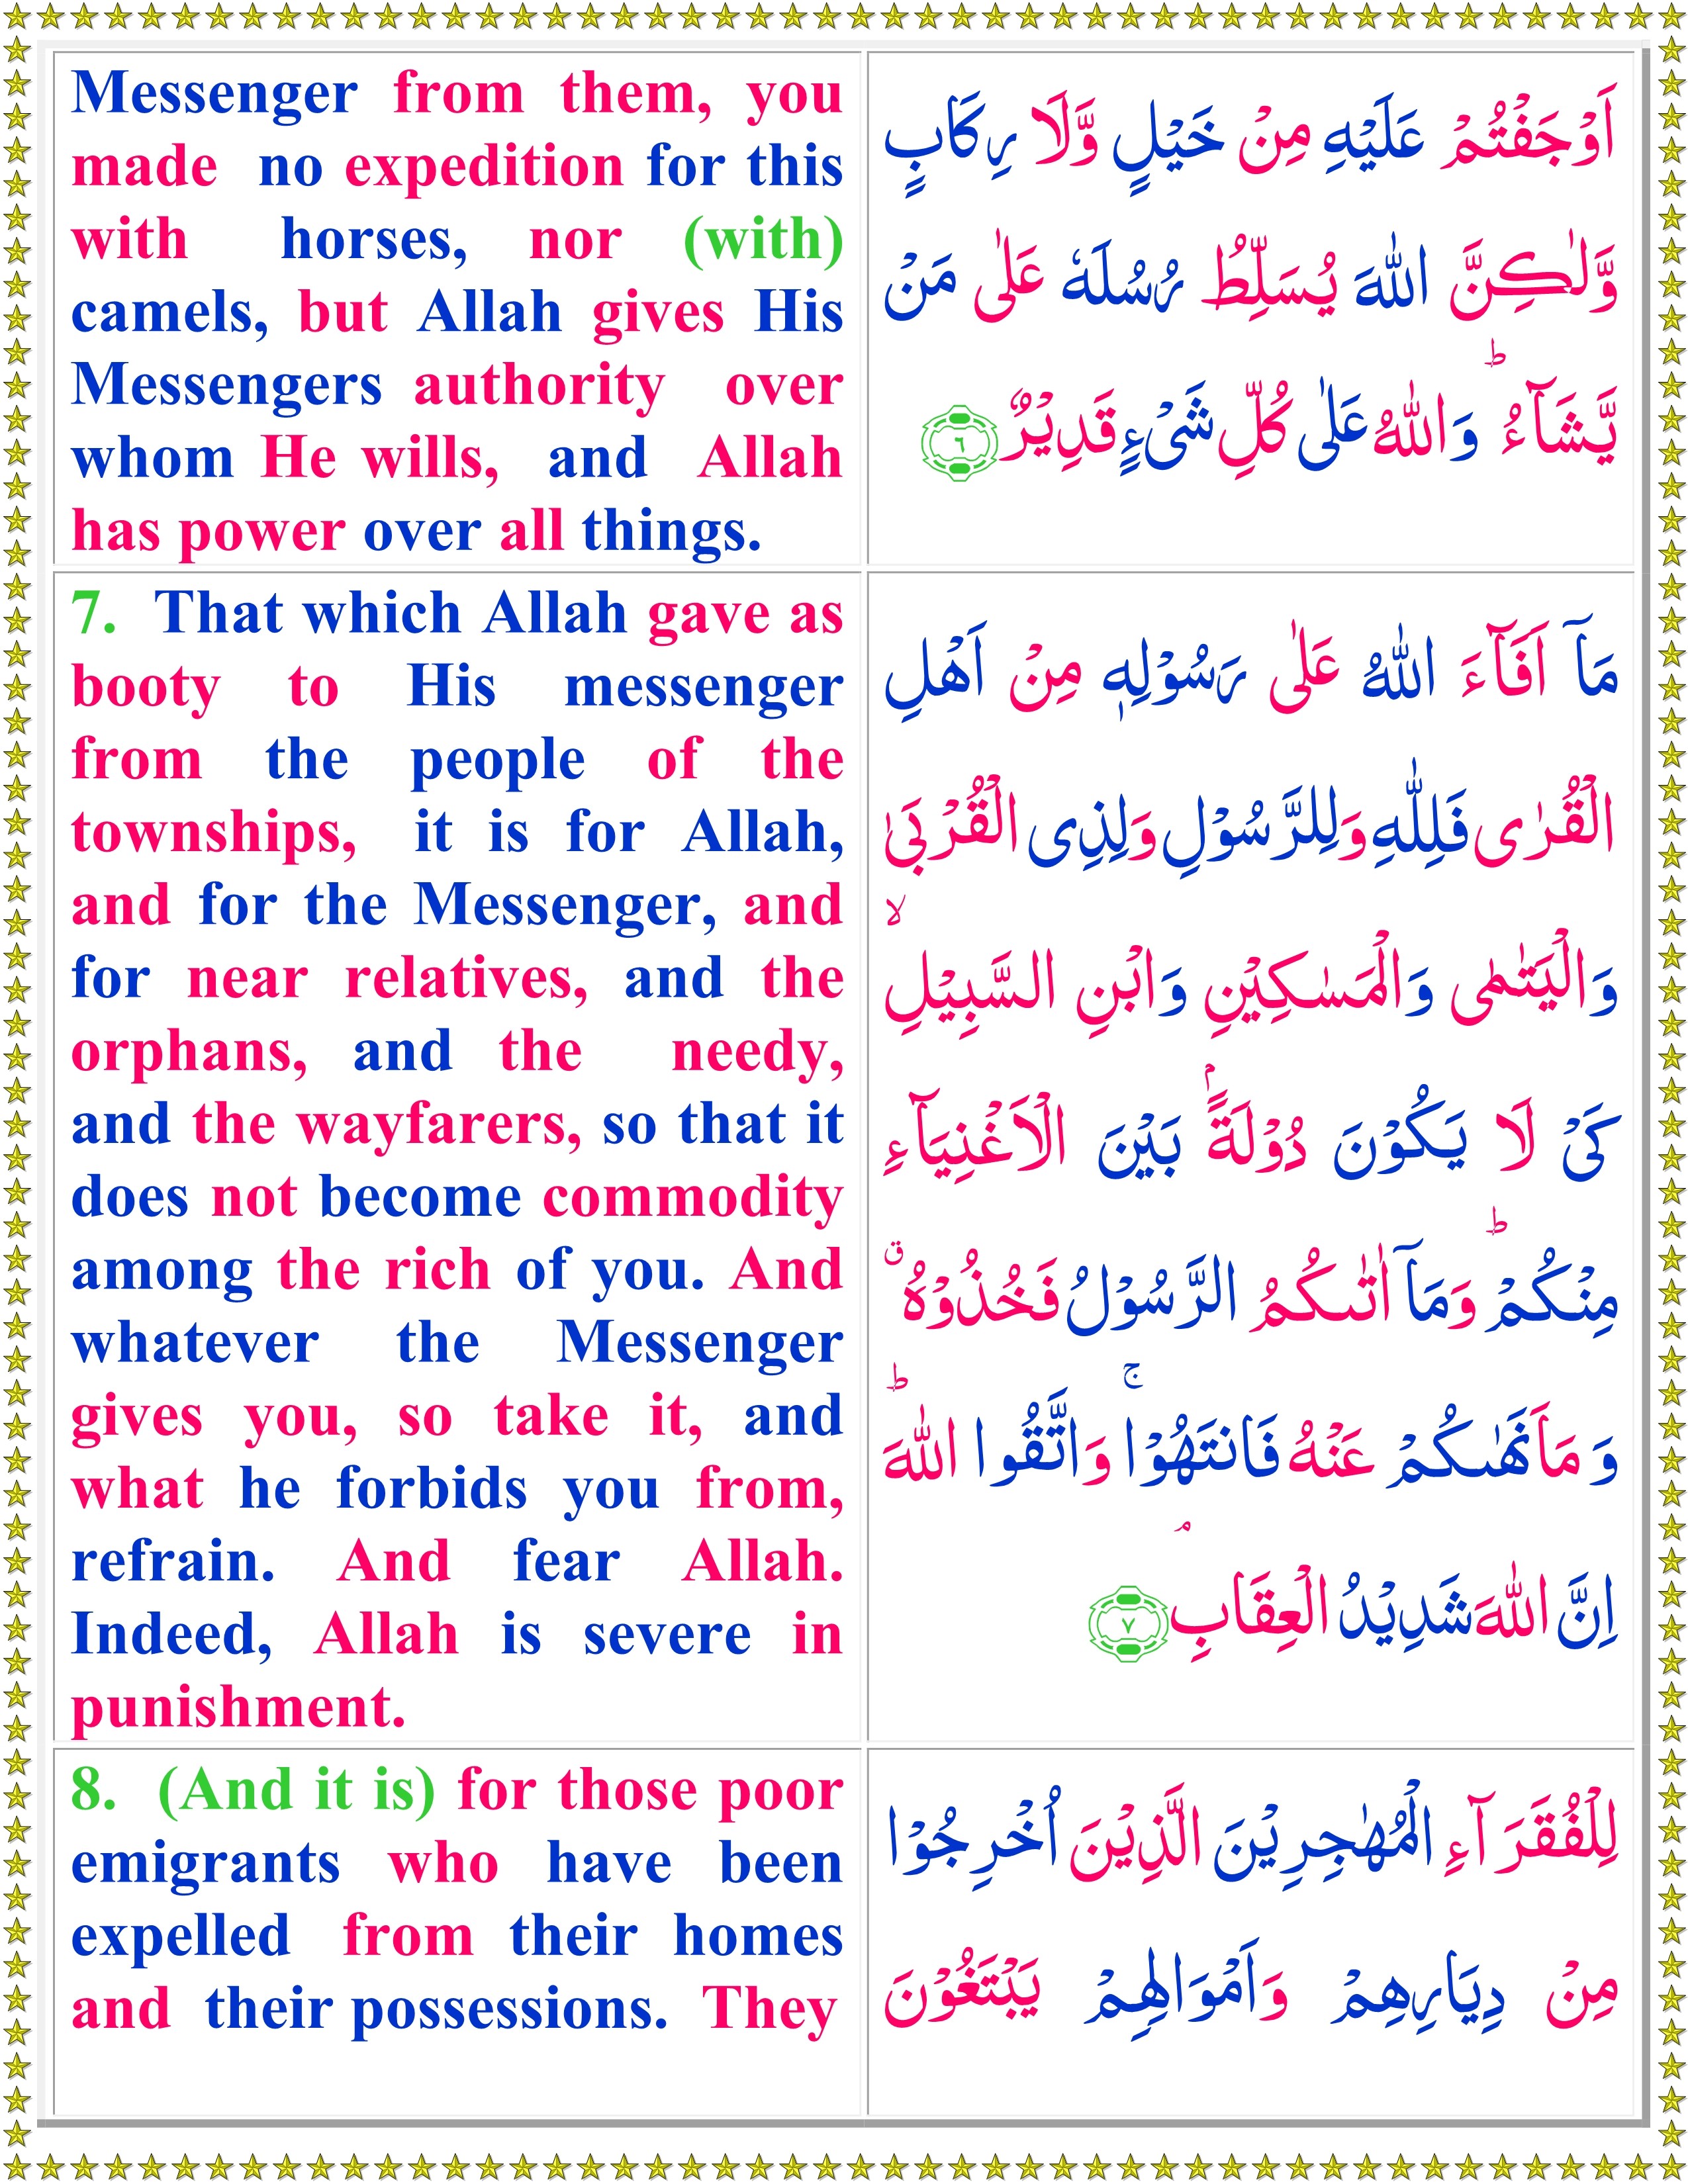 Messenger from them, you
made no expedition for this
with horses, nor (with)
camels, but Allah gives His
Messengers authority over
whom He wills, and Allah
has power over all things.
اَوْجَفْتُمْ عَلَيْهِ مِنْ خَيْلٍ وَّلَا رِكَابٍ
وَّلٰكِنَّ اللّٰهَ يُسَلِّطُ رُسُلَهٗ عَلٰى مَنْ
يَّشَآءُ ؕ وَاللّٰهُ عَلٰى كُلِّ شَىْءٍ قَدِيْرٌ ٦
7. That which Allah gave as
booty to His messenger
from the people of the
townships, it is for Allah,
and for the Messenger, and
for near relatives, and the
orphans, and the needy,
and the wayfarers, so that it
does not become commodity
among the rich of you. And
whatever the Messenger
gives you, so take it, and
what he forbids you from,
refrain. And fear Allah.
Indeed, Allah is severe in
punishment.
مَاۤ اَفَآءَ اللّٰهُ عَلٰى رَسُوْلِهٖ مِنْ اَهْلِ
الْقُرٰى فَلِلّٰهِ وَلِلرَّسُوْلِ وَلِذِى الْقُرْبٰى
وَالْيَتٰمٰى وَالْمَسٰكِيْنِ وَابْنِ السَّبِيْلِ ۙ
كَىْ لَا يَكُوْنَ دُوْلَةًۢ بَيْنَ الْاَغْنِيَآءِ
مِنْكُمْ ؕ وَمَاۤ اٰتٰٮكُمُ الرَّسُوْلُ فَخُذُوْهُ ۚ ق
وَ مَا نَهٰٮكُمْ عَنْهُ فَانْتَهُوْا ۚ وَاتَّقُوا اللّٰهَ ؕ
اِنَّ اللّٰهَ شَدِيْدُ الْعِقَابِ ۘ ٧
8. (And it is) for those poor
emigrants who have been
expelled from their homes
and their possessions. They
لِلْفُقَرَآءِ الْمُهٰجِرِيْنَ الَّذِيْنَ اُخْرِجُوْا
مِنْ دِيَارِهِمْ وَاَمْوَالِهِمْ يَبْتَغُوْنَ